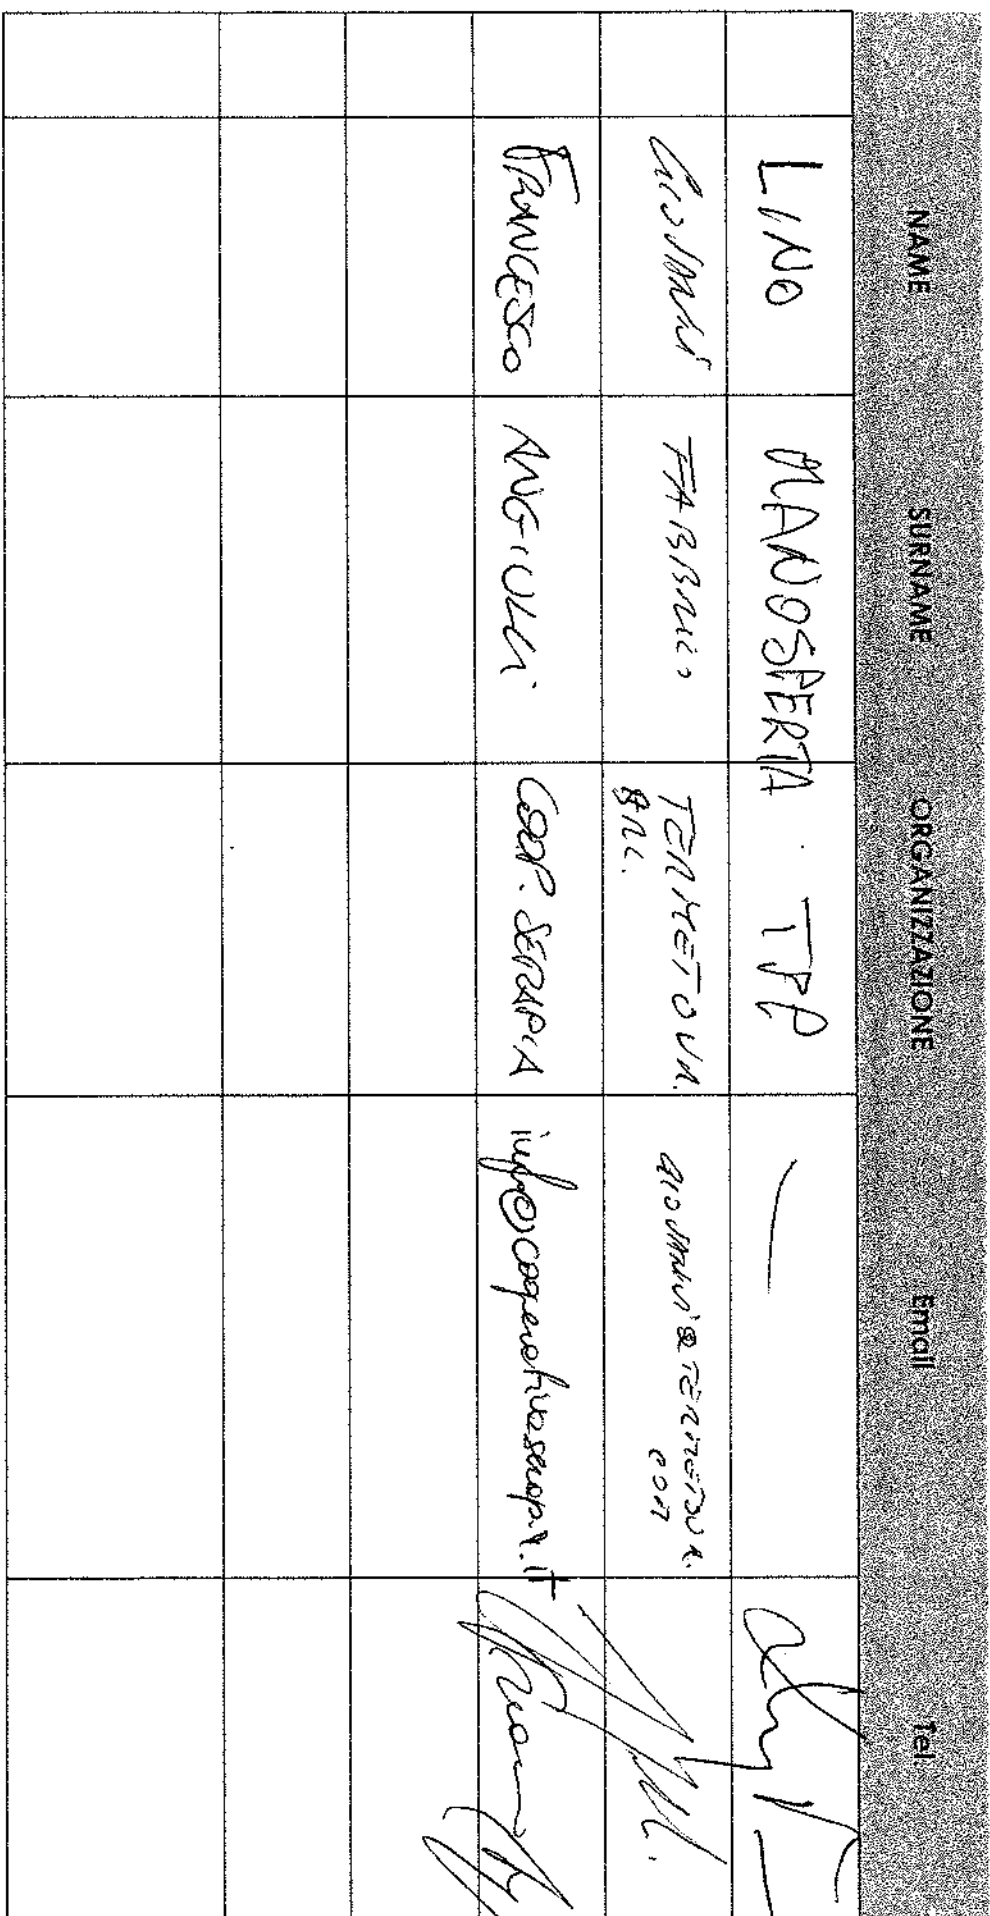 NAME SURNAME ORGANIZZAZIONE Email Tel
LINO MANOSPERTA TPP —
GIOVANNI FABBRICO TERMETOVR. GIOVANNI@TERMETOVR.
SRL. COM
FRANCESCO ANGIULLI COOP. SERAPIA info@cooperativaserapia.it